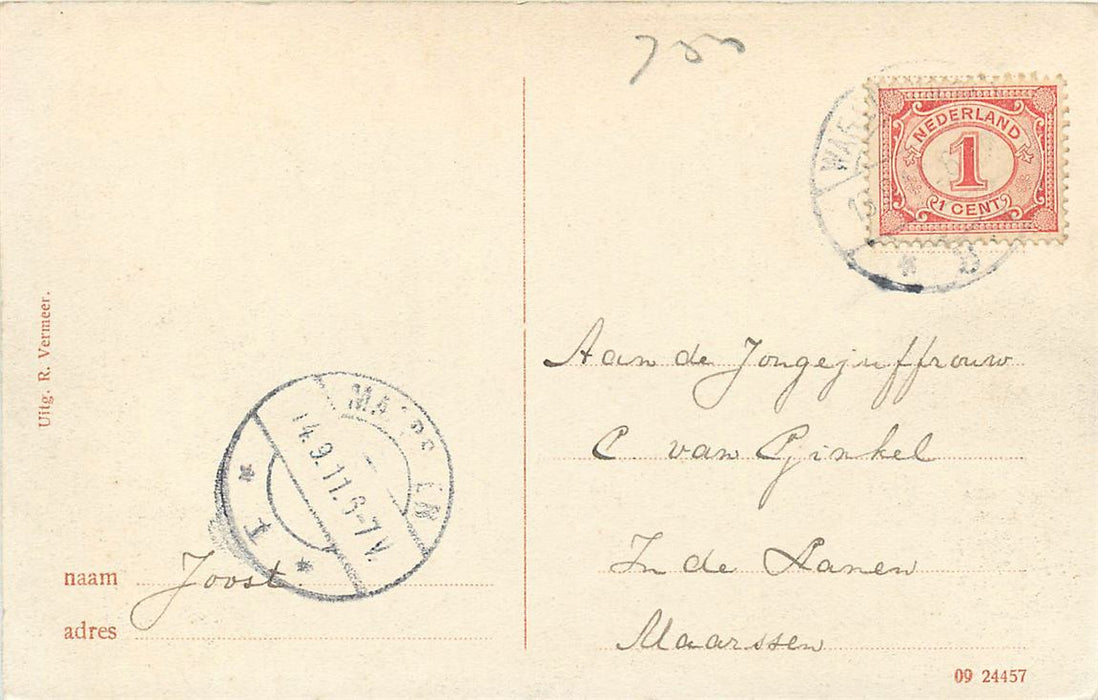 Uitg. R. Vermeer.
naam Joost
adres
14.9.11.6-7V.
NEDERLAND
1
1 CENT
Aan de Jongejuffrouw
C van Ginkel
In de Hanen
Maarssen
09 24457